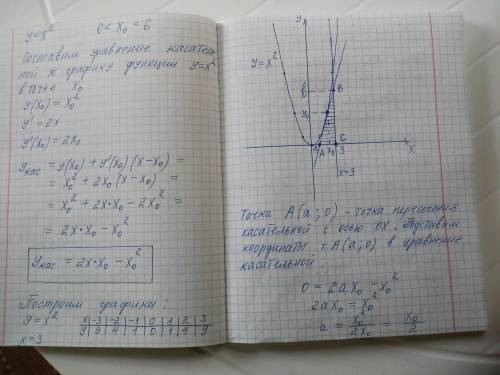 y=x² 0 < x₀ < 6
Составим уравнение касатель-
ной к графику функции y=x²
в точке x₀
y(x₀) = x₀²
y' = 2x
y'(x₀) = 2x₀
yкас = y(x₀) + y'(x₀)(x-x₀) =
= x₀² + 2x₀(x-x₀) =
= x₀² + 2x·x₀ - 2x₀² =
= 2x·x₀ - x₀²
yкас = 2x·x₀ - x₀²
Построим графики:
y = x²
x -3 -2 -1 0 1 2 3
y 9 4 1 0 1 4 9
x=3
y
y=x²
b B
y₀
a A x₀ 3 C x
x=3
Точка A(a; 0) - точка пересечения
касательной с осью OX. Подставим
координаты т. A(a; 0) в уравнение
касательной
0 = 2ax₀ - x₀²
2ax₀ = x₀²
a = x₀²/2x₀ = x₀/2